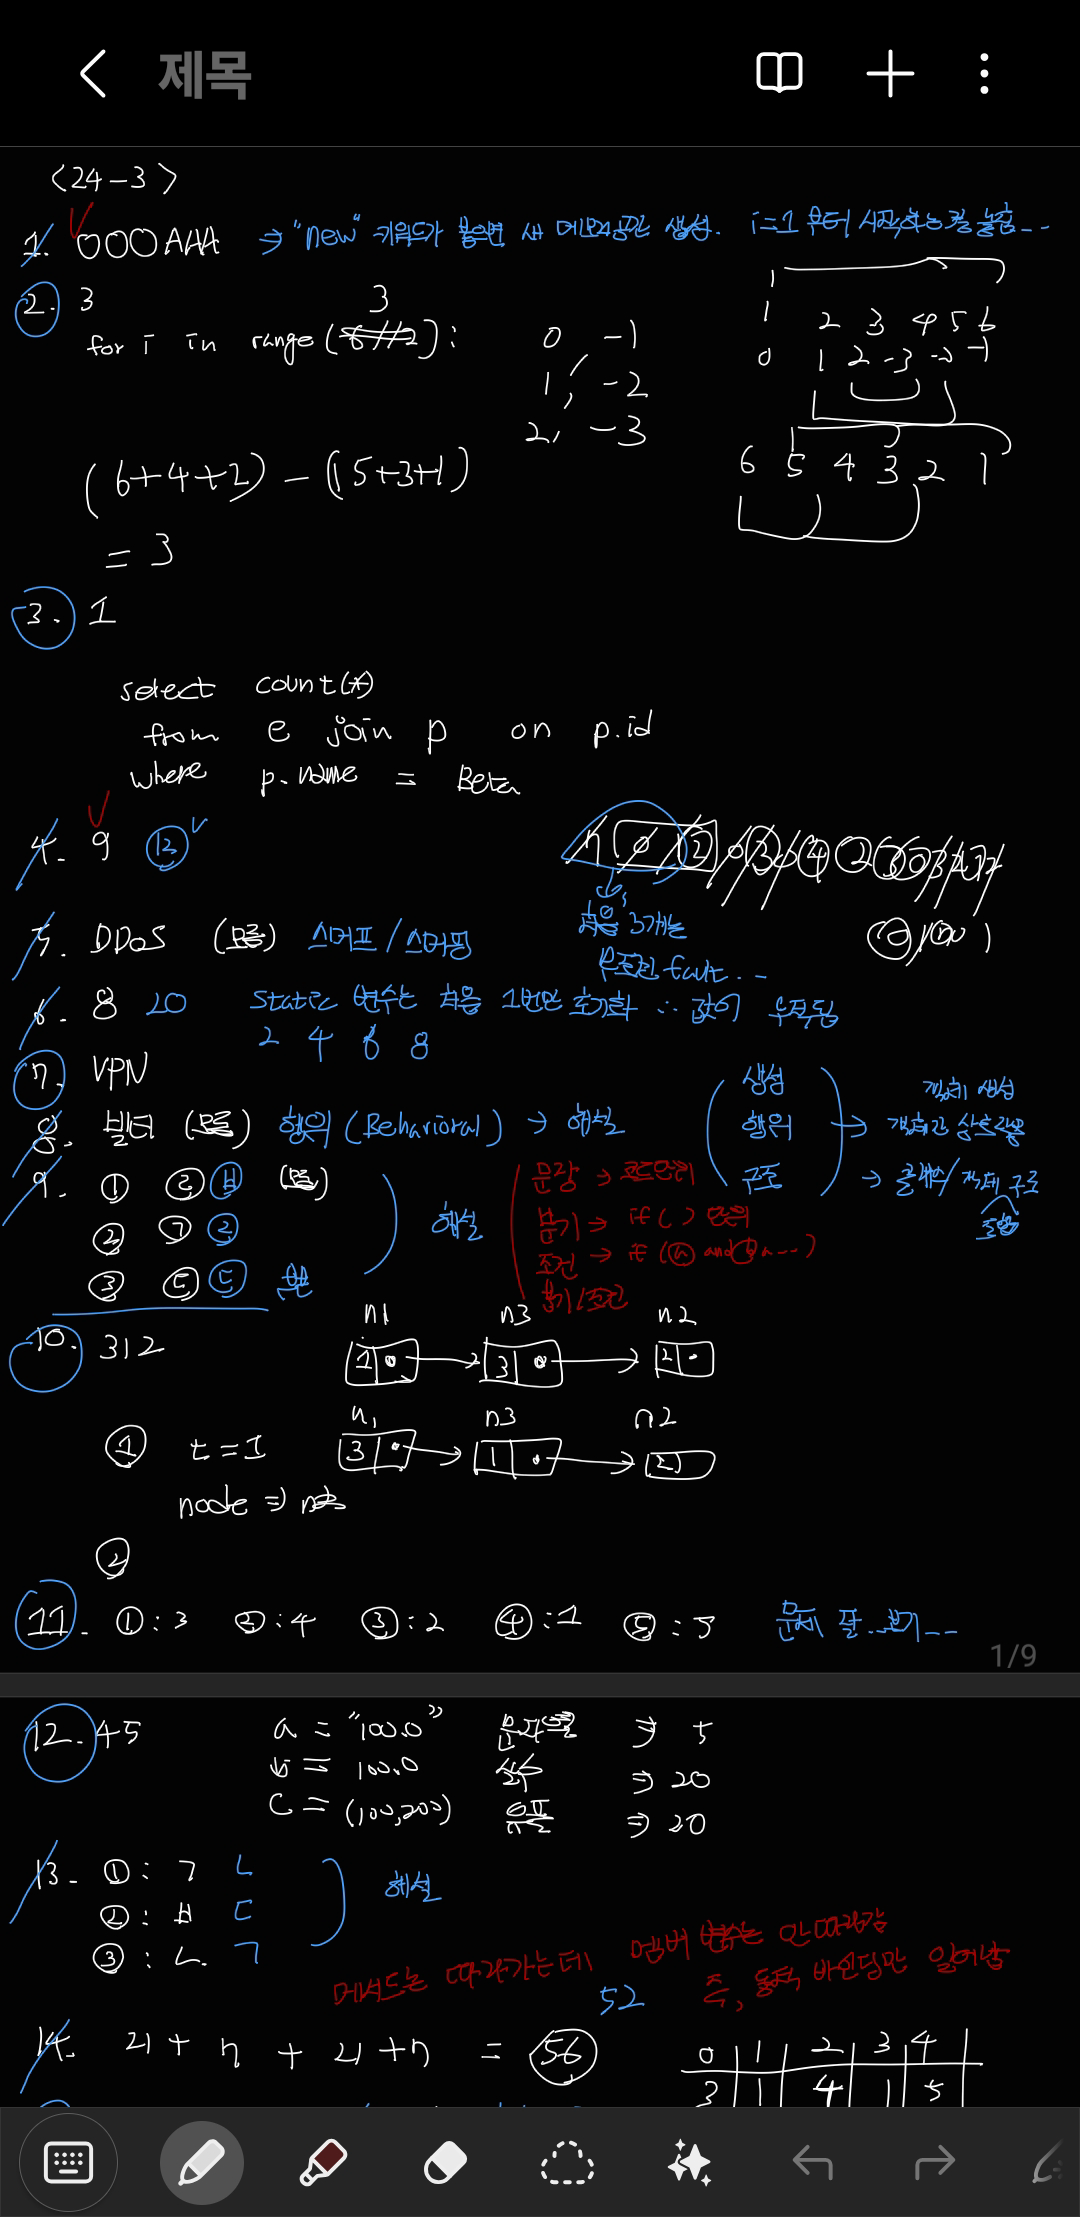 제목
<24-3>
1. 000AAA → "new" 키워드가 붙으면 새 메모리공간 생성. i=1 부터 시작하는걸 놓침...
2. 3
for i in range(3):
0 -1
1, -2
2, -3
1 2 3 4 5 6
0 1 2 -3 -2 -1
6 5 4 3 2 1
(6+4+2) - (5+3+1)
= 3
3. 1
select count(*)
from e join p on p.id
where p.name = Beta
4. 9 12
처음 3개는
무조건 fault...
5. DDoS (모름) 스머프/스머핑
6. 8 20 static 변수는 처음 1번만 초기화 ∴ 값이 누적됨
2 4 6 8
7. VPN
8. 빌더 (모름) 행위 (Behavioral) → 해설
생성 객체 생성
행위 → 객체간 상호작용
구조 → 클래스/객체 구조
9. ① ㄹ ㅂ (모름)
② ㄱ ㄹ
③ ㄷ ㄷ
해설
문장 → 코드단위
분기 → if( ) 단위
조건 → if (a and b ...)
분기/조건
10. 312
n1 n3 n2
1 3 2
n1 n3 n2
3 1 2
① t=1
node ⇒
②
11. ①:3 ②:4 ③:2 ④:1 ⑤:5 문제 잘..보기...
1/9
12. 45
a = "100.0" 문자열 ⇒ 5
b = 100.0 실수 ⇒ 20
c = (100,200) 튜플 ⇒ 20
13. ①: ㄱ ㄴ
②: ㅂ ㄷ
③: ㄴ. ㄱ
해설
메서드는 따라가는데 멤버 변수는 안따라감
즉, 동적 바인딩만 일어남
52
14. 21 + 7 + 21 + 7 = 56
0 1 2 3 4
3 1 4 1 5